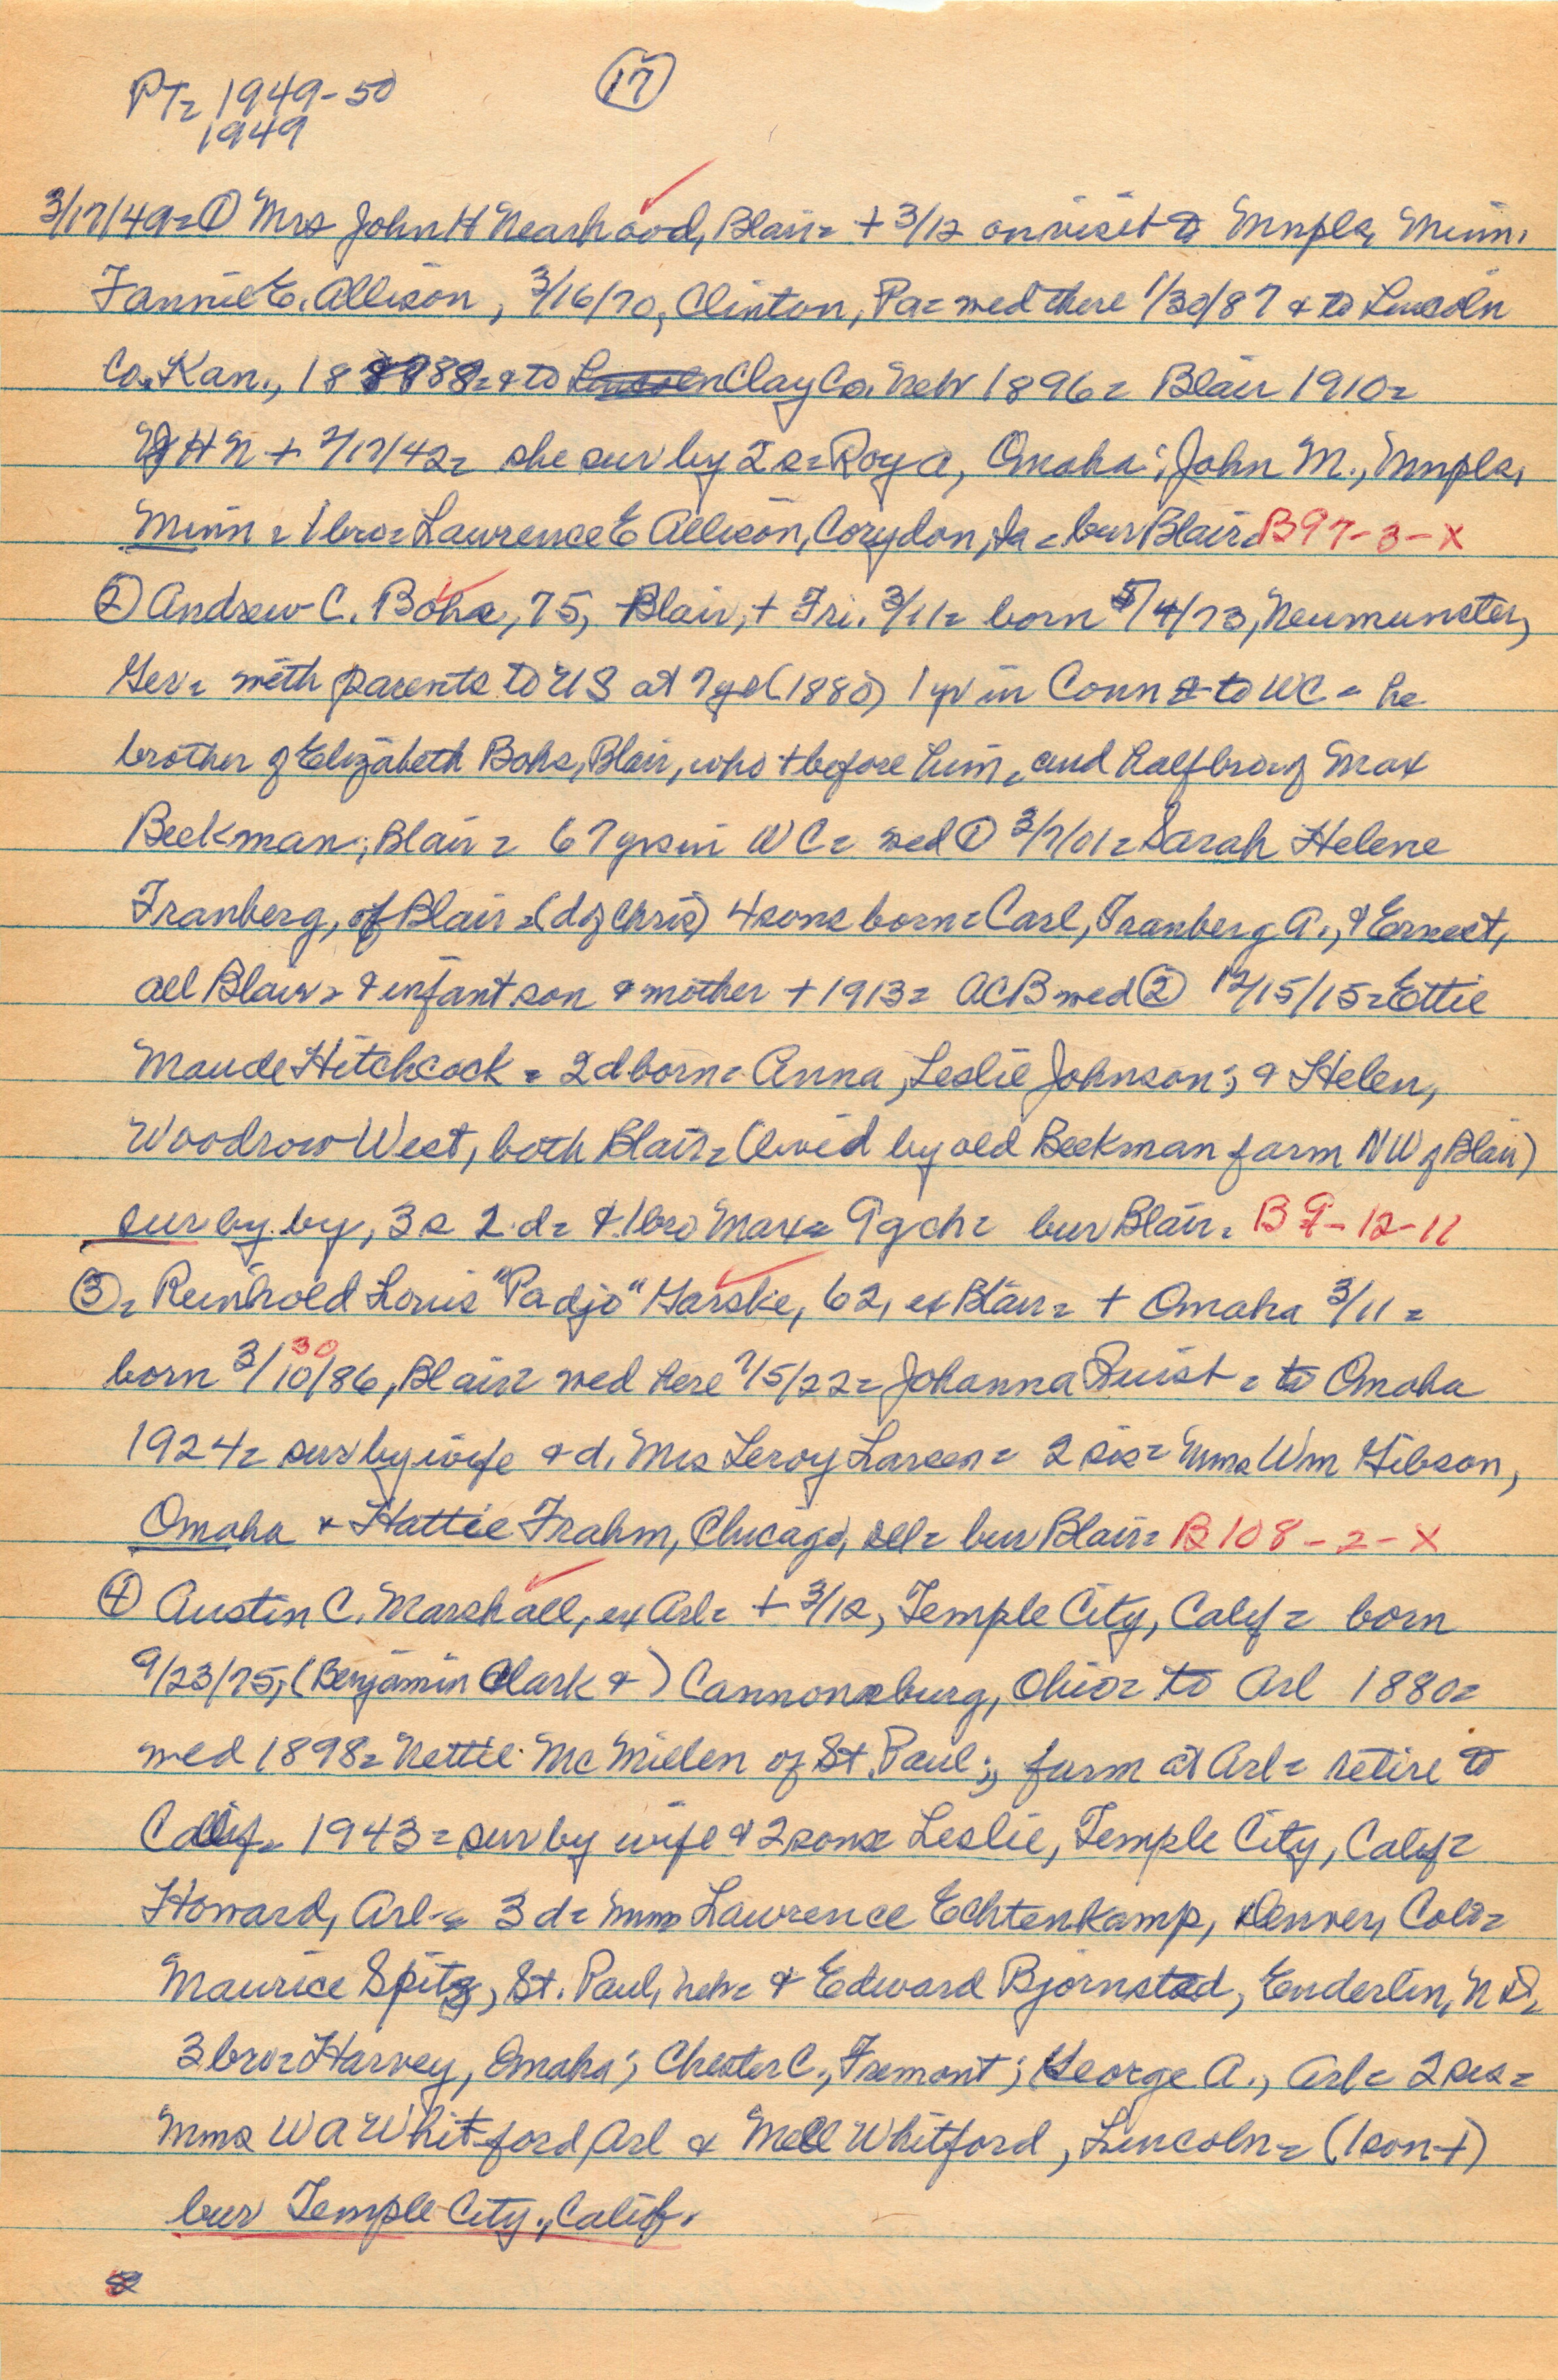 PT= 1949-50
17
1949
3/17/49= ① Mrs John H Nearhood, Blair= + 3/12 on visit to Mnpls, Minn.
Fannie E. Allison, 3/16/70, Clinton, Pa= wed there 1/30/87 & to Lincoln
Co. Kan., 1888= & to Clay Co. Neb 1896= Blair 1910=
JHN + 7/17/42= she sur by 2 s= Roy A, Omaha; John M., Mnpls,
Minn= 1 bro= Lawrence E Allison, Corydon, Ia= bur Blair= B97-3-X
② Andrew C. Bohs, 75, Blair, + Fri. 3/11= born 5/4/73, Neumunster,
Ger= with parents to US at 7 yrs (1880) 1 yr in Conn & to WC= he
brother of Elizabeth Bohs, Blair, who + before him, and half bro of Max
Beekman, Blair= 67 yrs in WC= wed ① 3/7/01= Sarah Helene
Franberg, of Blair= (d of Chris) 4 sons born= Carl, Franberg A., & Ernest,
all Blair= & infant son & mother + 1913= ACB wed ② 12/15/15= Ettie
Maude Hitchcock= 2 d born= Anna, Leslie Johnson; & Helen,
Woodrow West, both Blair= (lived by old Beekman farm NW of Blair)
sur by by, 3 s 2 d= & 1 bro Max= 9 gch= bur Blair= B 9-12-11
③= Reinhold Louis "Padjo" Garske, 62, ex Blair= + Omaha 3/11=
30
born 3/10/86, Blair= wed here 7/5/22= Johanna Quist= to Omaha
1924= sur by wife & d. Mrs Leroy Larsen= 2 sis= Mms Wm Gibson,
Omaha & Hattie Frahm, Chicago, Ill= bur Blair= B108-2-X
④ Austin C. Marshall, ex Arl= + 3/12, Temple City, Calif= born
9/23/75, (Benjamin Clark & ) Cannonsburg, Ohio= to Arl 1880=
wed 1898= Nettie McMillen of St. Paul; farm at Arl= retire to
Calif= 1943= sur by wife & 2 sons= Leslie, Temple City, Calif=
Howard, Arl= 3 d= Mms Lawrence Echtenkamp, Denver, Colo=
Maurice Spitz, St. Paul, Neb= & Edward Bjornstad, Enderlin, N D=
3 bro= Harvey, Omaha; Chester C., Fremont; George A., Arl= 2 sis=
Mms W A Whitford, Arl & Mell Whitford, Lincoln= (1 son +)
bur Temple City, Calif.